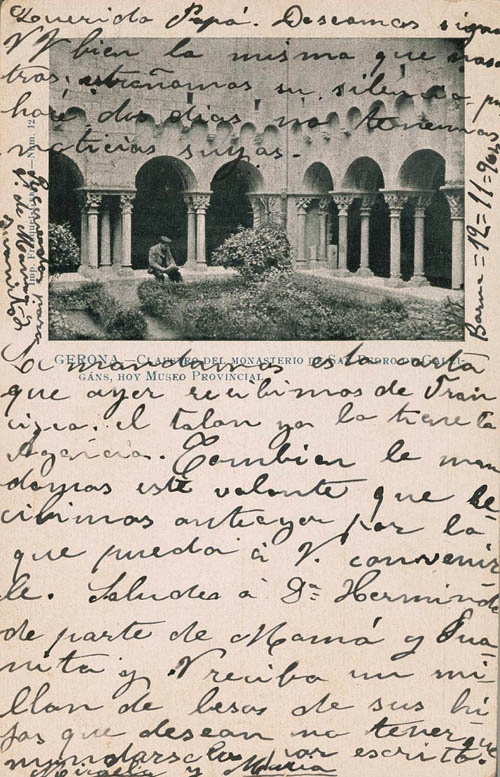 Querido Papá. Deseamos siga
V bien la misma que noso
tros, extrañamos su silencio pr
hace dos días no tenemos
noticias suyas.
Barna = 12 = 11 = 902
GERONA.—CLAUSTRO DEL MONASTERIO DE SAN PEDRO DE GALLI-
GÁNS, HOY MUSEO PROVINCIAL
Le mandamos esta carta
que ayer recibimos de Fran
cisca. el talon ya lo tiene la
Agencia. Tambien le man
damos este volante que re
civimos anteayer por lo
que pueda á V. convenir
le. Saludes á Dª Herminda
de parte de Mamá y Jua
nita y V reciba un mi
llon de besos de sus hi
jas que desean no tener que
mandarselos por escrito.
y Maria